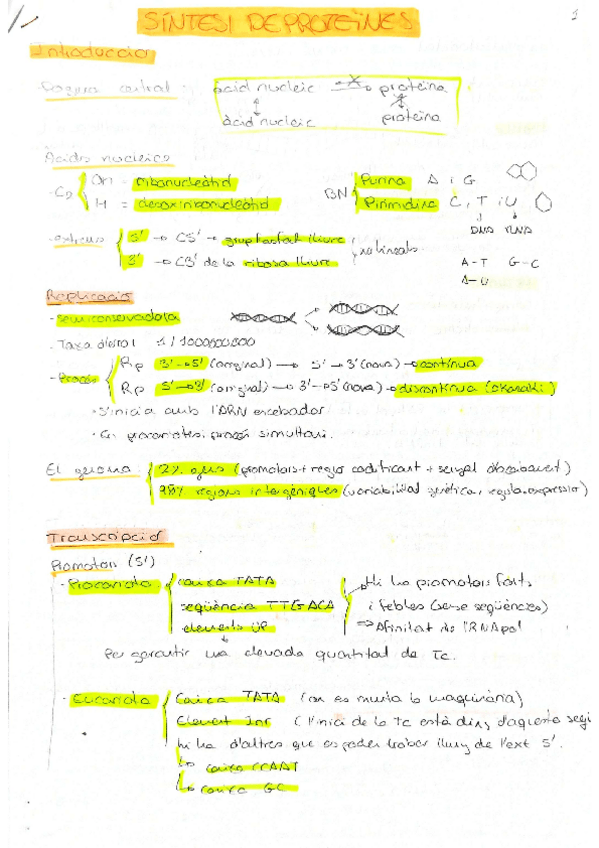 SÍNTESI DE PROTEÏNES
1
Introducció
- Dogma central: àcid nucleic → proteïna
àcid nucleic proteïna
Àcids nucleics
- C2 { OH = ribonucleòtid
H = desoxiribonucleòtid
BN { Purina A i G
Pirimidina C, T i U
DNA RNA
- extrems { 5' → C5' → grup fosfat lliure
3' → C3' de la ribosa lliure
A-T G-C
A-U
Replicació
- Semiconservadora
- Taxa d'error 1/1000000000
- Procés { Rp 3'→5' (original) → 5'→3' (nova) → contínua
Rp 5'→3' (original) → 3'→5' (nova) → discontínua (okazaki)
· S'inicia amb l'ARN encebador
· En procariotes: procés simultani.
El genoma { 2% gens (promotors + regió codificant + senyal d'acabament)
98% regions intergèniques (variabilitat genètica, regula expressió)
Transcripció
Promotors (5')
- Procariota { caixa TATA
seqüència TTGACA
elements UP
Hi ha promotors forts
i febles (sense seqüències)
⇒ Afinitat de l'RNApol
Per garantir una elevada quantitat de Tc.
- Eucariota { Caixa TATA (on es munta la maquinària)
Element Inr (l'inici de la Tc està dins d'aquesta seqü
hi ha d'altres que es poden trobar lluny de l'ext 5'.
↳ caixa CCAAT
↳ caixa GC